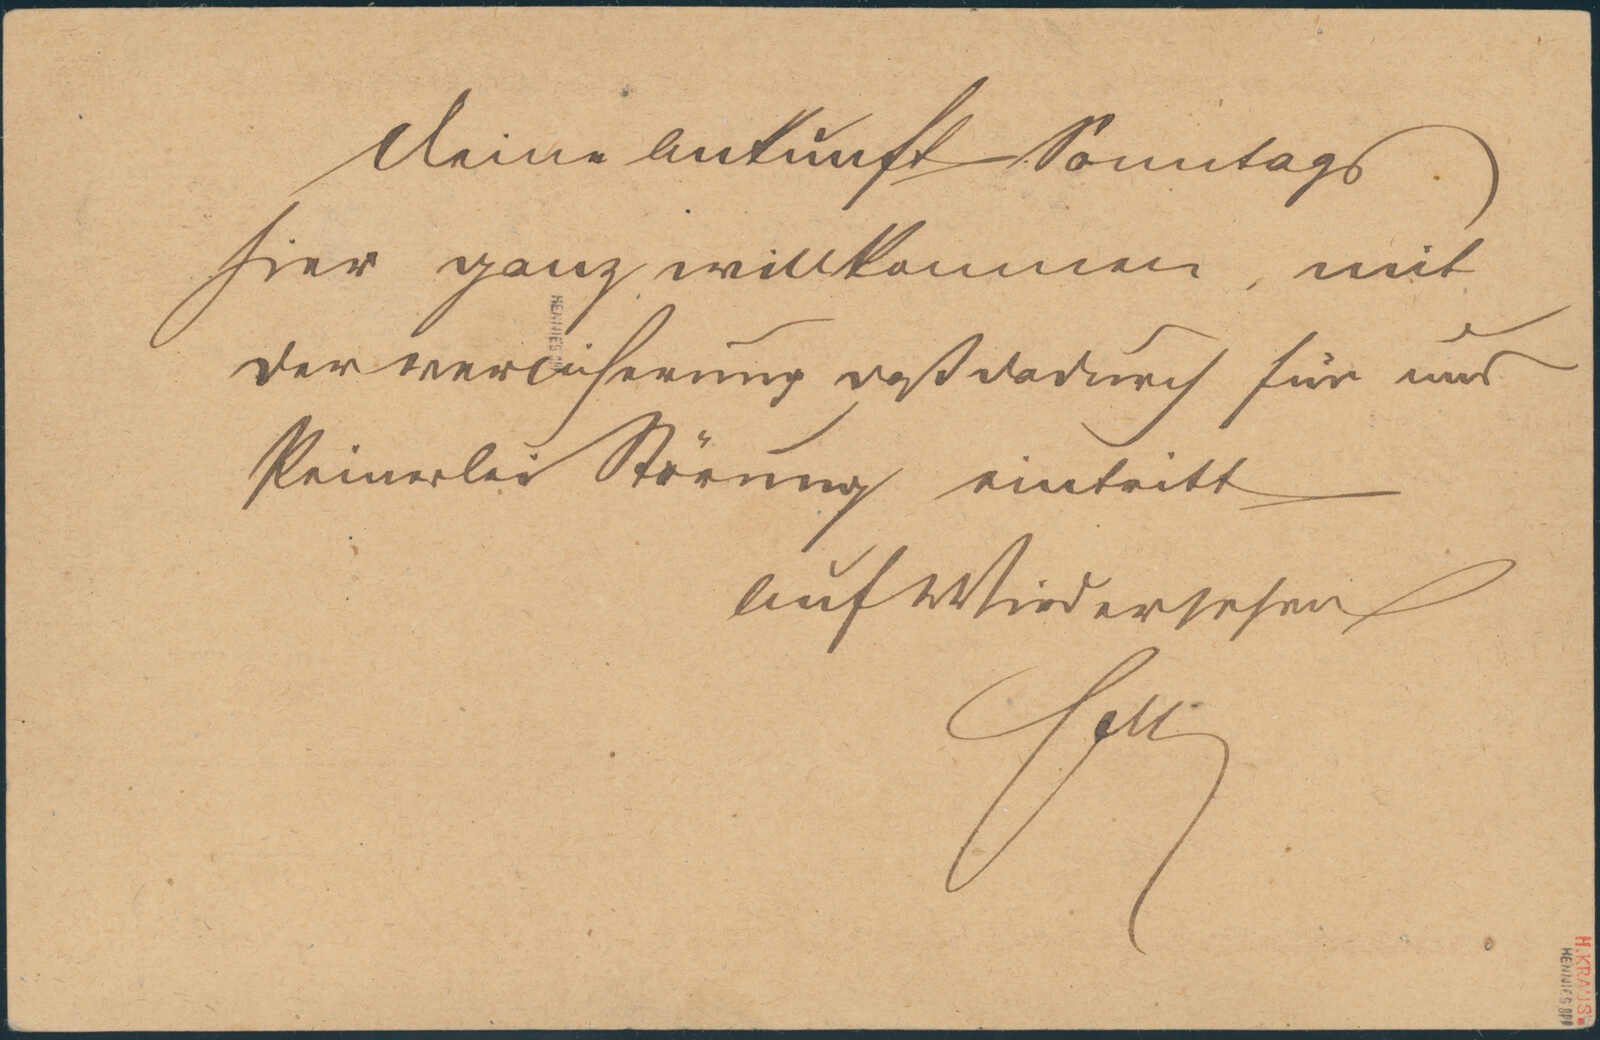 Deine Ankunft Sonntags
hier ganz willkommen, mit
der versicherung daß dadurch für uns
keinerlei Störung eintritt
Auf Wiedersehen
HENNIES
H. KRAUS
HENNIES BPP